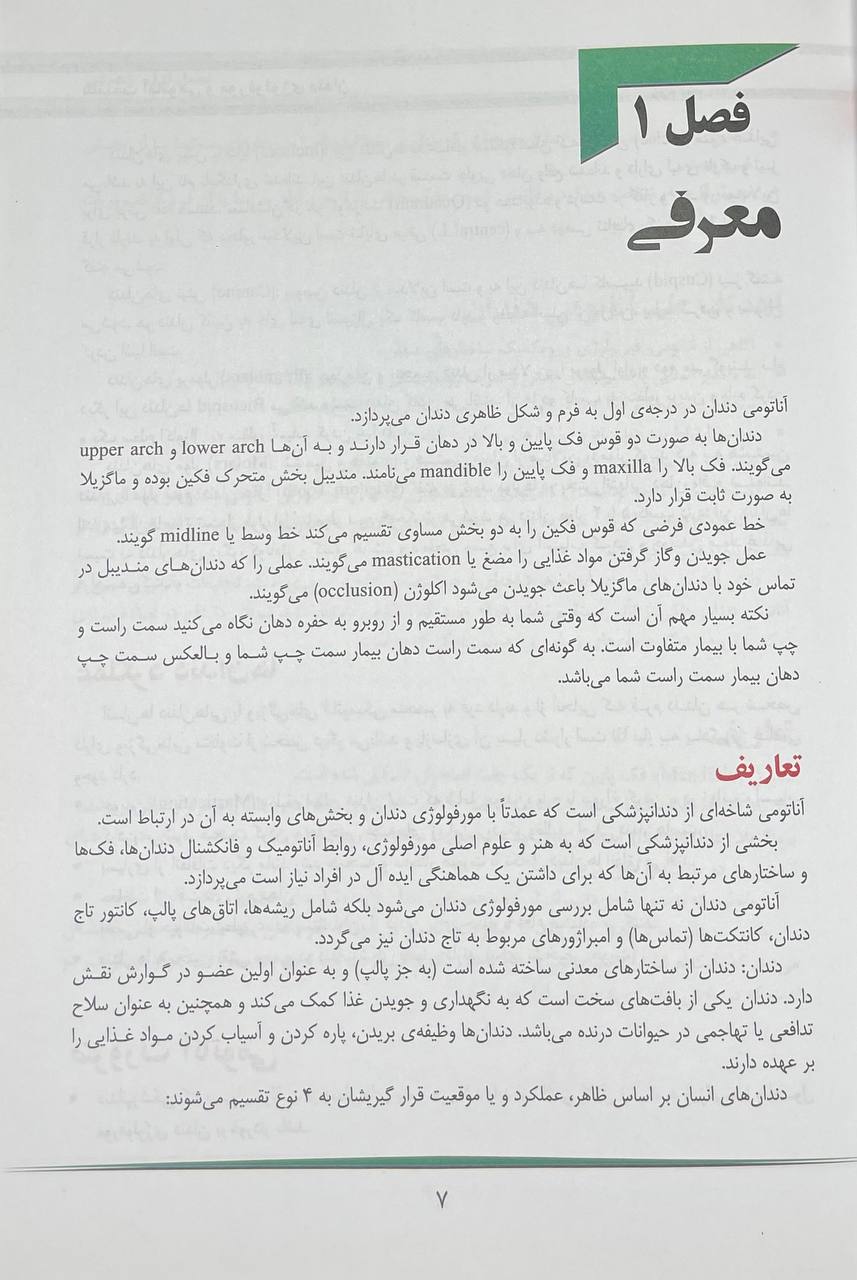 فصل ۱
معرفی
آناتومی دندان در درجه‌ی اول به فرم و شکل ظاهری دندان می‌پردازد.
دندان‌ها به صورت دو قوس فک پایین و بالا در دهان قرار دارند و به آن‌ها lower arch و upper arch
می‌گویند. فک بالا را maxilla و فک پایین را mandible می‌نامند. مندیبل بخش متحرک فکین بوده و ماگزیلا
به صورت ثابت قرار دارد.
خط عمودی فرضی که قوس فکین را به دو بخش مساوی تقسیم می‌کند خط وسط یا midline گویند.
عمل جویدن وگاز گرفتن مواد غذایی را مضغ یا mastication می‌گویند. عملی را که دندان‌های مندیبل در
تماس خود با دندان‌های ماگزیلا باعث جویدن می‌شود اکلوژن (occlusion) می‌گویند.
نکته بسیار مهم آن است که وقتی شما به طور مستقیم و از روبرو به حفره دهان نگاه می‌کنید سمت راست و
چپ شما با بیمار متفاوت است. به گونه‌ای که سمت راست دهان بیمار سمت چپ شما و بالعکس سمت چپ
دهان بیمار سمت راست شما می‌باشد.
تعاریف
آناتومی شاخه‌ای از دندانپزشکی است که عمدتاً با مورفولوژی دندان و بخش‌های وابسته به آن در ارتباط است.
بخشی از دندانپزشکی است که به هنر و علوم اصلی مورفولوژی، روابط آناتومیک و فانکشنال دندان‌ها، فک‌ها
و ساختارهای مرتبط به آن‌ها که برای داشتن یک هماهنگی ایده آل در افراد نیاز است می‌پردازد.
آناتومی دندان نه تنها شامل بررسی مورفولوژی دندان می‌شود بلکه شامل ریشه‌ها، اتاق‌های پالپ، کانتور تاج
دندان، کانتکت‌ها (تماس‌ها) و امبراژورهای مربوط به تاج دندان نیز می‌گردد.
دندان: دندان از ساختارهای معدنی ساخته شده است (به جز پالپ) و به عنوان اولین عضو در گوارش نقش
دارد. دندان یکی از بافت‌های سخت است که به نگهداری و جویدن غذا کمک می‌کند و همچنین به عنوان سلاح
تدافعی یا تهاجمی در حیوانات درنده می‌باشد. دندان‌ها وظیفه‌ی بریدن، پاره کردن و آسیاب کردن مواد غذایی را
بر عهده دارند.
دندان‌های انسان بر اساس ظاهر، عملکرد و یا موقعیت قرار گیریشان به ۴ نوع تقسیم می‌شوند:
۷